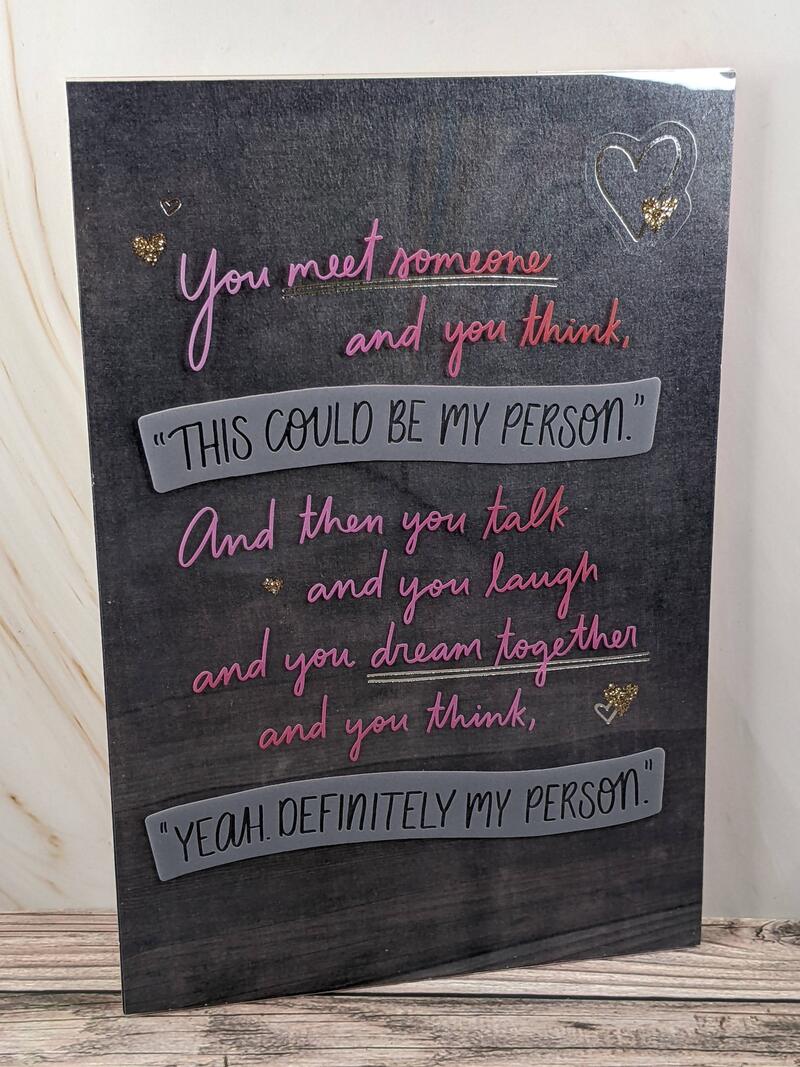 You meet someone
and you think,
"THIS COULD BE MY PERSON."
And then you talk
and you laugh
and you dream together
and you think,
"YEAH. DEFINITELY MY PERSON."